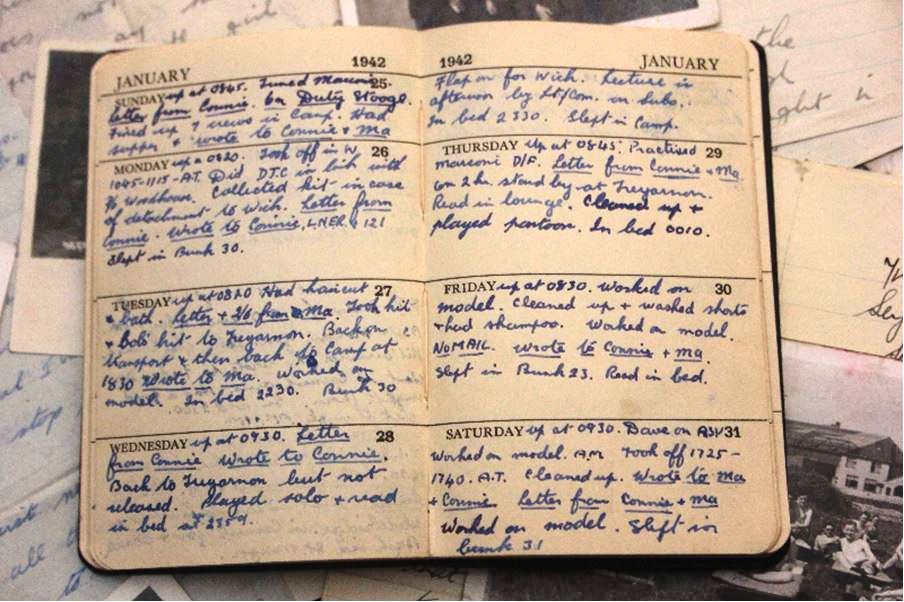 JANUARY 1942
25
SUNDAY up at 0845. Tuned Marconi
letter from Connie. On Duty Stooge.
Fired up 7 views in Camp. Had
supper + wrote to Connie + Ma
MONDAY up a 0820. Took off in W, 26
1045-1115-A.T. Did D.T.C in link with
P/O Woodhouse. Collected kit in case
of detachment to Wick. Letter from
Connie. Wrote to Connie, LNER, + 121
Slept in Bunk 30.
TUESDAY up at 0820 Had haircut 27
+ bath. letter + 2/6 from Ma. Took kit
+ Bob' kit to Treyarnon. Back on
transport + then back to Camp at
1830 Wrote to Ma. Worked on
model. In bed 2230. Bunk 30
WEDNESDAY up at 0930. Letter 28
from Connie Wrote to Connie.
Back to Treyarnon but not
released. Played solo + read
in bed at 2359.
1942 JANUARY
Flap on for Wick. Lecture in
afternoon by Lt/Com. in Subs.
In bed 2330. Slept in Camp.
THURSDAY Up at 0845. Practised 29
marconi D/F. Letter from Connie + Ma
On 2 hr. stand by at Treyarnon.
Read in lounge. Cleaned up +
played pontoon. In bed 0010.
FRIDAY up at 0830. Worked on 30
model. Cleaned up + washed shorts
+ had shampoo. Worked on model.
NO MAIL. Wrote to Connie + Ma.
Slept in Bunk 23. Read in bed.
SATURDAY up at 0930. Dave on ASV 31
Worked on model. A.M Took off 1725-
1740. A.T. Cleaned up. Wrote to Ma
+ Connie. Letter from Connie + Ma
Worked on model. Slept in
bunk 31
the
ght in